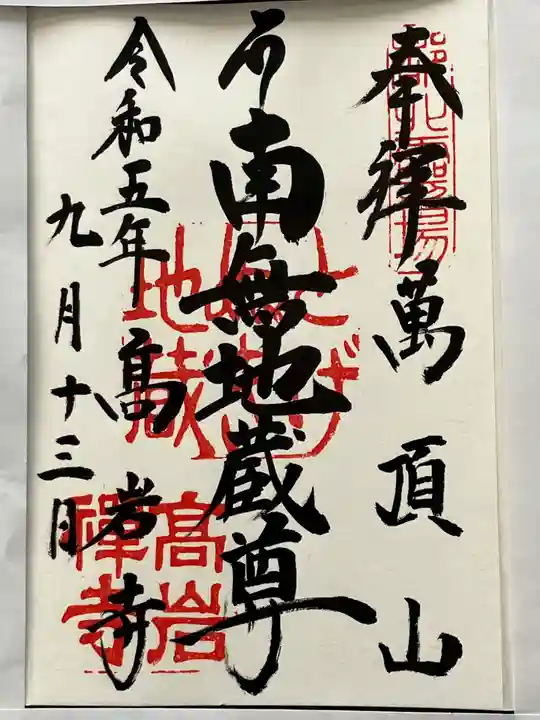 奉拝 萬頂山
南無地蔵尊
高岩寺
令和五年
九月十三日
とげぬき
地蔵
高岩
禅寺